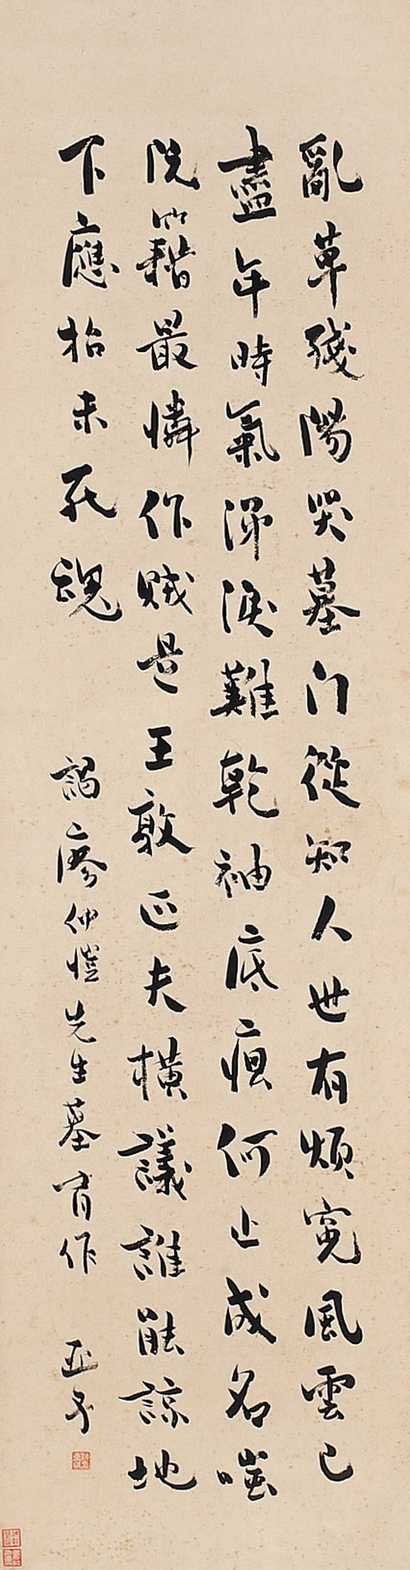 亂草殘陽哭墓門從知人世有煩冤風雲已
盡年時氣涕淚難乾袖底痕何止成名嗤
阮籍最憐作賊是王敦匹夫橫議誰能諒地
下應招未死魂
謁廖仲愷先生墓有作 亞子